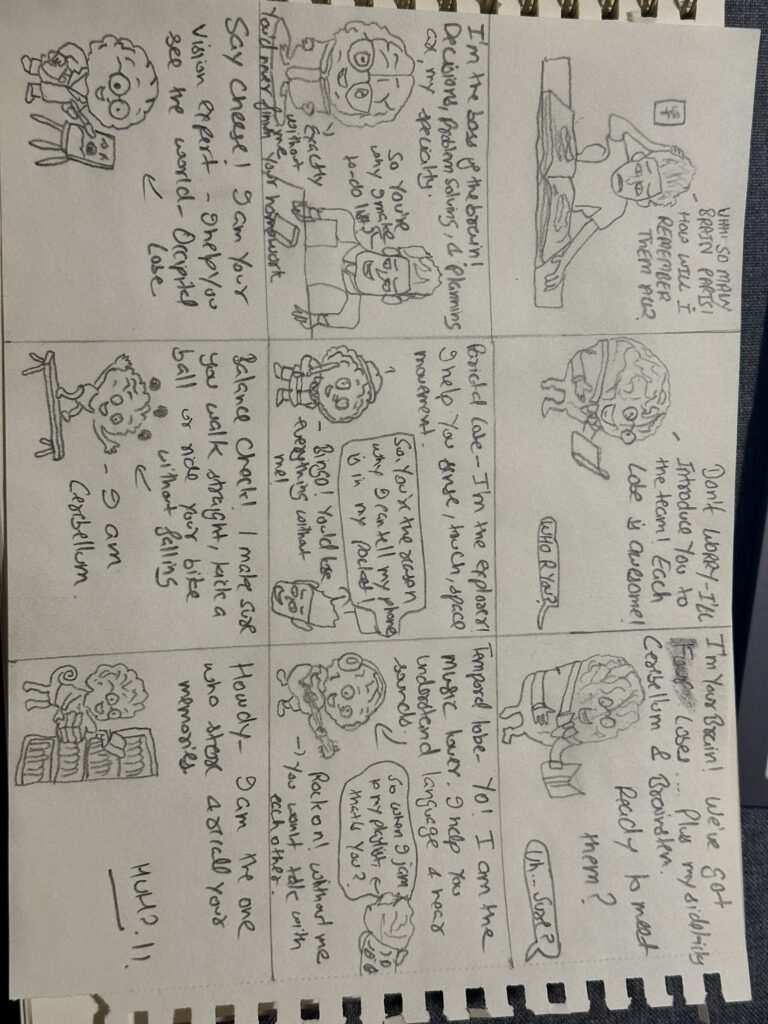 UHH! SO MANY
BRAIN PARTS!
HOW WILL I
REMEMBER
THEM ALL?
Don't worry-I'll
Introduce You to
the team! Each
Lobe is awesome!
WHO R YOU?
I'm Your Brain! We've got
Lobes.... Plus my sidekicks
Cerebellum & Brainstem.
Ready to meet
them?
Uh... Sure?
I'm the boss of the brain!
Decisions, Problem Solving, & planning
my specialty.
So You're
why I make
to-do lists
Exactly
without
me
You'd never finish your homework
Parietal Lobe-I'm the explorer!
I help You sense, touch, space
movement.
So, You're the reason
why I can tell my phone
is in my pocket!
- Bingo! You'd lose
everything without
me!
Temporal lobe- Yo! I am the
music lover. I help You
understand language & hear
sounds.
So when I jam
to my playlist
that's You?
Rock on! Without me
→ You won't talk with
each other.
Say Cheese! I am Your
Vision expert - I help You
see the world- Occipital
Lobe
Balance Check! I make sure
You walk straight, kick a
ball or ride your bike
without falling
- I am
Cerebellum.
Howdy- I am the one
who store & recall Your
memories
HUH?!!